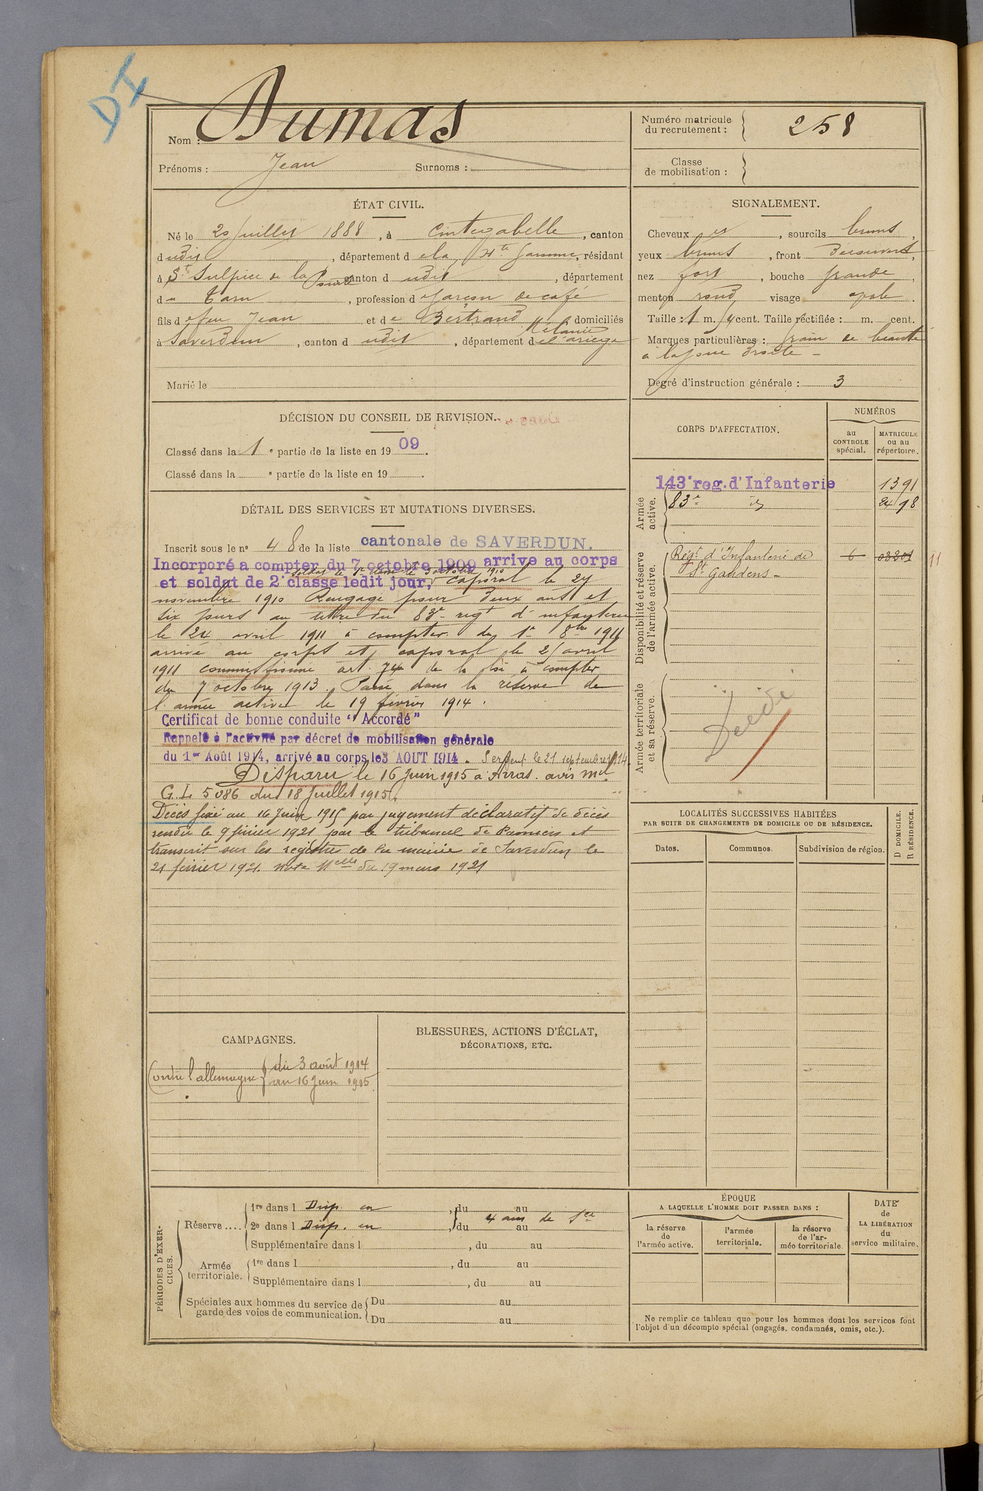 DI
Nom : Dumas
Prénoms : Jean Surnoms :
Numéro matricule du recrutement : 258
Classe de mobilisation :
ÉTAT CIVIL.
Né le 20 Juillet 1888, à Cintegabelle, canton
dudit, département de la Hte Garonne, résidant
à St Sulpice de la Pointe canton dudit, département
du Tarn, profession de garçon de café
fils de feu Jean et de Bertrand Mélanie domiciliés
à Saverdun, canton dudit, département de l'ariège
Marié le
SIGNALEMENT.
Cheveux et, sourcils bruns,
yeux bruns, front Découvert,
nez fort, bouche grande,
menton rond visage ovale.
Taille : 1 m. cent. Taille rectifiée : m. cent.
Marques particulières : grain de beauté
à la joue droite
Degré d'instruction générale : 3
DÉCISION DU CONSEIL DE REVISION.
Classé dans la 1e partie de la liste en 1909.
Classé dans la e partie de la liste en 19 .
DÉTAIL DES SERVICES ET MUTATIONS DIVERSES.
Inscrit sous le no 48 de la liste cantonale de SAVERDUN.
Incorporé a compter du 7 octobre 1909 arrive au corps
et soldat de 2e classe ledit jour, caporal le 24
novembre 1910 Rengagé pour deux ans et
six jours au titre du 83e regt d'infanterie
le 24 avril 1911 à compter du 1er 8bre 1911
arrivé au corps et caporal le 25 avril
1911 commissionné art. 74 de la loi à compter
du 7 octobre 1913. Passé dans la réserve de
l'armée active le 19 février 1914.
Certificat de bonne conduite "Accordé"
Rappelé à l'activité par décret de mobilisation générale
du 1er Août 1914, arrivé au corps le 3 AOUT 1914. Sergent le 21 septembre 1914
Disparu le 16 juin 1915 à Arras. avis mel
G.L 5086 du 18 Juillet 1915.
Décès fixé au 16 Juin 1915 par jugement déclaratif de décès
rendu le 9 février 1921 par le tribunal de Pamiers et
transcrit sur les registres de la mairie de Saverdun le
21 février 1921. Note Melle du 19 mars 1921
CORPS D'AFFECTATION.
NUMÉROS
au CONTROLE spécial.
MATRICULE ou au répertoire.
Armée active.
143e reg. d'Infanterie 1391
83e id
Disponibilité et réserve de l'armée active.
Régt d'Infanterie de St Gaudens 6
11
Armée territoriale et sa réserve.
Décédé
LOCALITÉS SUCCESSIVES HABITÉES
PAR SUITE DE CHANGEMENTS DE DOMICILE OU DE RÉSIDENCE.
Dates. Communes. Subdivision de région. D DOMICILE. R RÉSIDENCE.
CAMPAGNES.
Contre l'allemagne du 3 août 1914
au 16 Juin 1915
BLESSURES, ACTIONS D'ÉCLAT,
DÉCORATIONS, ETC.
PÉRIODES D'EXERCICES.
Réserve .... 1re dans l Disp. en , du au
2e dans l Disp. en , du au 4 ans de Sce
Supplémentaire dans l , du au
Armée territoriale. 1re dans l , du au
Supplémentaire dans l , du au
Spéciales aux hommes du service de garde des voies de communication. Du au
Du au
ÉPOQUE
A LAQUELLE L'HOMME DOIT PASSER DANS :
la réserve de l'armée active.
l'armée territoriale.
la réserve de l'armée territoriale.
DATE de LA LIBÉRATION du service militaire.
Ne remplir ce tableau que pour les hommes dont les services font
l'objet d'un décompte spécial (engagés, condamnés, omis, etc.).